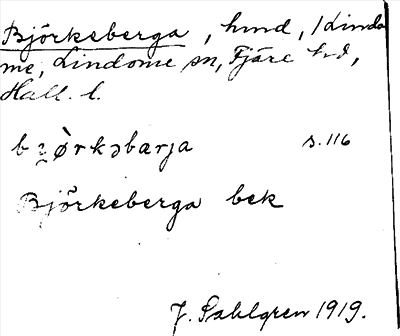 Björkeberga, hmd, 1 Lindo
me, Lindome sn, Fjäre hd,
Hall. l.
bjòrkəbærja s. 116
Björkeberga bek
J. Sahlgren 1919.